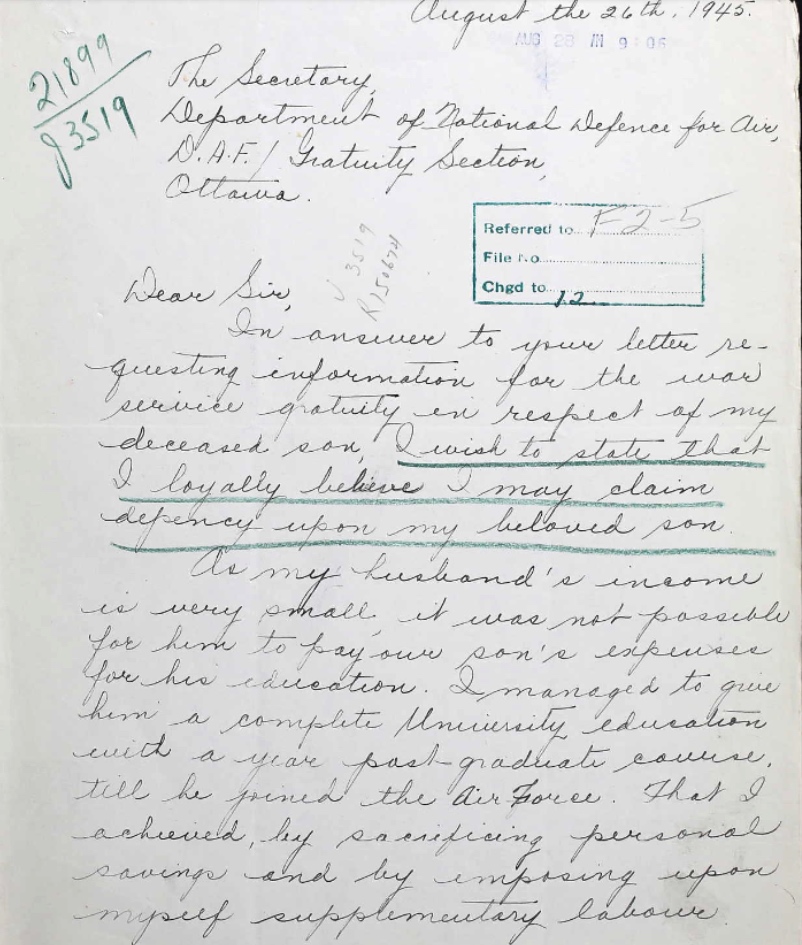 August the 26th, 1945.
AUG 28 AM 9:06
21899
J3519
The Secretary,
Department of National Defence for Air,
D.A.F./ Gratuity Section,
Ottawa.
J 3519
R150674
Referred to F2-5
File No
Chgd to 12
Dear Sir,
In answer to your letter re-
questing information for the war
service gratuity in respect of my
deceased son, I wish to state that
I loyally believe I may claim
depency upon my beloved son.
As my husband's income
is very small, it was not possible
for him to pay our son's expenses
for his education. I managed to give
him a complete University education
with a year post-graduate course,
till he joined the Air Force. That I
achieved, by sacrificing personal
savings and by imposing upon
myself supplementary labour.